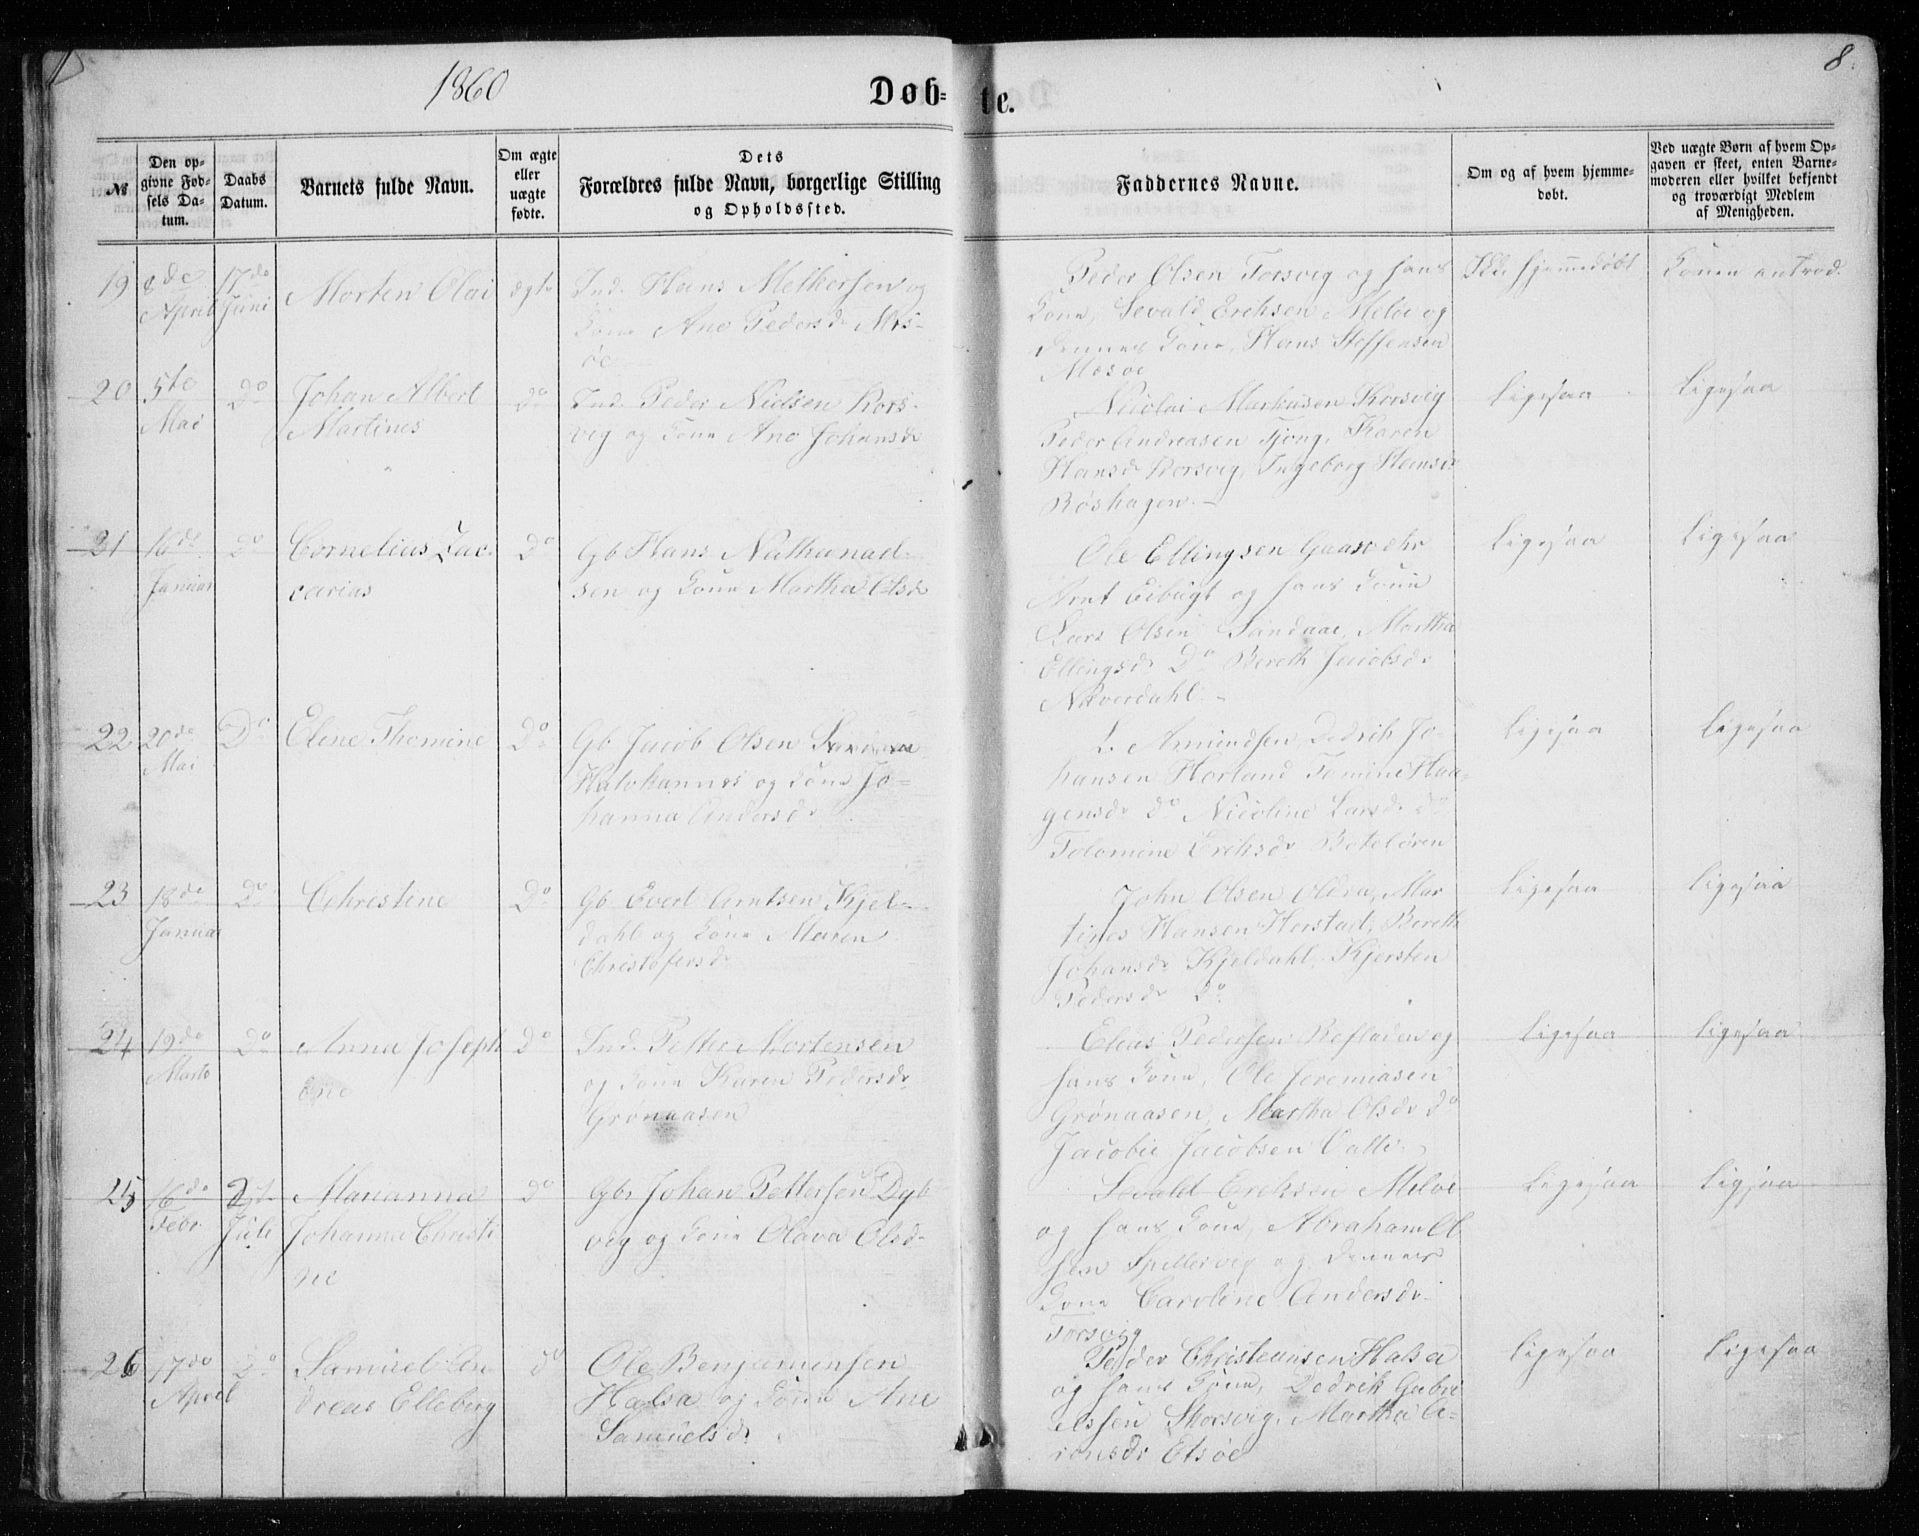 1860
Døb=
te.
8.
№
Den opgivne Fødsels Datum.
Daabs Datum.
Barnets fulde Navn.
Om ægte eller uægte fødte.
Dets
Forældres fulde Navn, borgerlige Stilling
og Opholdssted.
Faddernes Navne.
Om og af hvem hjemmedøbt.
Ved uægte Børn af hvem Opgaven er skeet, enten Barnemoderen eller hvilket bekjendt og troværdigt Medlem af Menigheden.
19
8de April
17de Juni
Morten Olai
ægte
Ind. Hans Melkersen og
Kone Ane Pedersdr Mes-
øe
Peder Olsen Torsvig og hans
Kone, Sevald Eriksen Meløe og
dennes Kone, Hans Steffensen
Mesøe
Ikke hjemmedøbt
20
5te Mai
Do
Johan Albert
Martines
Do
Ind. Peder Nielsen Kors-
vig og Kone Ane Johansdr
Nicolai Markusen Korsvig
Peder Andreasen Tjong, Karen
Hansdr Korsvig, Ingeborg Hansdr
Røshagen
Ligesaa
Ligesaa
21
16de Januar
Do
Cornelius Zac-
carias
Do
Gb Hans Nathanael-
sen og Kone Martha Olsdr
Ole Ellingsen Gaasvehr
Arnt Eibugt og hans Kone
Lars Olsen Sandaae, Martha
Ellingsdr Do Bereth Jacobsdr
Nkverdahl
Ligesaa
Ligesaa
22
20de Mai
Do
Elene Thomine
Do
Gb Jacob Olsen
Halvhannes og Kone Jo-
hanna Andersdr
L. Amundsen, Dedrik Jo-
hansen Horland Tomine Haa-
gensdr Do Nicoline Larsdr Do
Tolomine Eriksdr
Ligesaa
Ligesaa
23
18de Januar
Do
Christine
Do
Gb. Evert Arntsen Kjel-
dahl og Kone Maren
Christofersdr
John Olsen Oldra, Mar
tines Hansen Herstad, Bereth
Johansdr Kjeldahl, Kjersten
Pedersdr Do
Ligesaa
Ligesaa
24
19de Marts
Do
Anna Joseph
ine
Do
Ind. Petter Mortensen
og Kone Karen Pedersdr
Grønaasen
Elias Pedersen Refladen og
hans Kone, Ole Jeremiasen
Grønaasen, Martha Olsdr Do
Jacobie Jacobsen Valle
Ligesaa
Ligesaa
25
16de Febr
2 Juli
Marianna
Johanna Christi
ne
Do
Gbr Johan Pettersen Dyb
vig og Kone Olava Olsdr
Sevald Eriksen Meløe
og hans Kone, Abraham Ol
sen Spellervig og dennes
Kone Caroline Andersdr
Torsvig
Ligesaa
Ligesaa
26
17de April
Do
Samuel An
dreas Elleberg
Do
Ole Benjaminsen
Halsa og Kone Ane
Samuelsdr
Peder Christensen Halsa
og hans Kone, Dedrik Gabri
elssen Skorsvig, Martha A-
ronsdr Etsøe
Ligesaa
Ligesaa